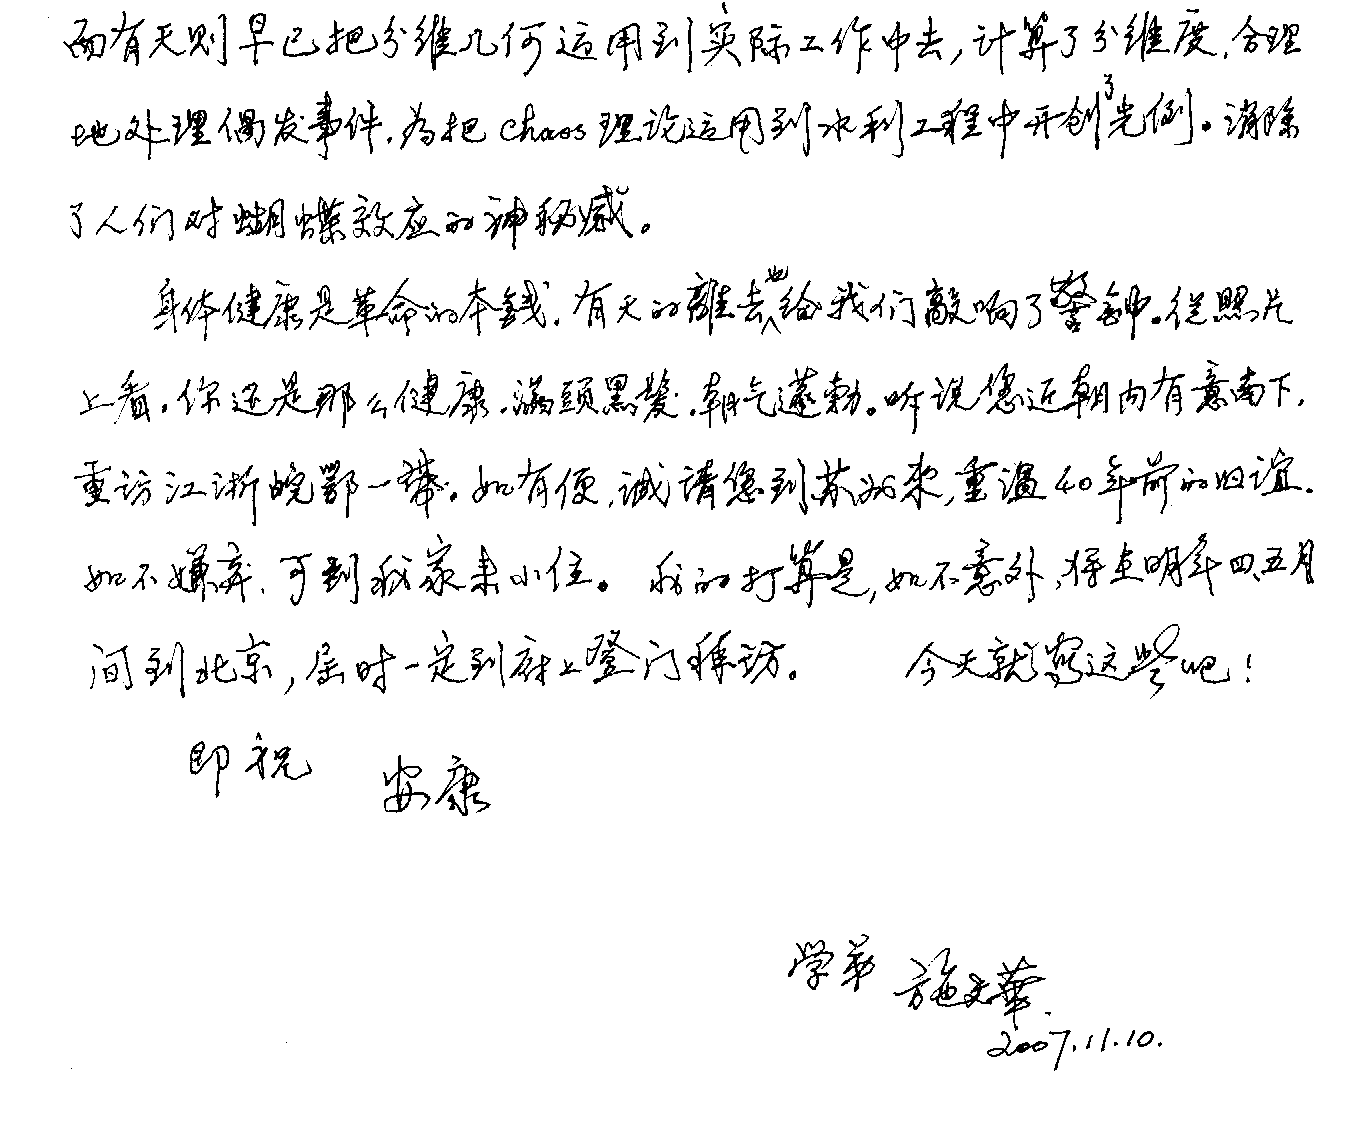 而有天则早已把分维几何运用到实际工作中去,计算了分维度,合理
地处理偶发事件,为把chaos理论运用到水利工程中开创了先例。消除
了人们对蝴蝶效应的神秘感。
身体健康是革命的本錢,有天的離去也给我们敲响了警钟。從照片
上看,你还是那么健康,满頭黑髮,朝气蓬勃。听说您近期内有意南下,
重访江浙皖鄂一帶。如有便,诚请您到苏州来,重温40年前的旧谊.
如不嫌弃,可到我家来小住。我的打算是,如不意外,将在明年四、五月
间到北京,届时一定到府上登门拜访。 今天就写这些吧!
即祝 安康
学弟 施文華
2007.11.10.